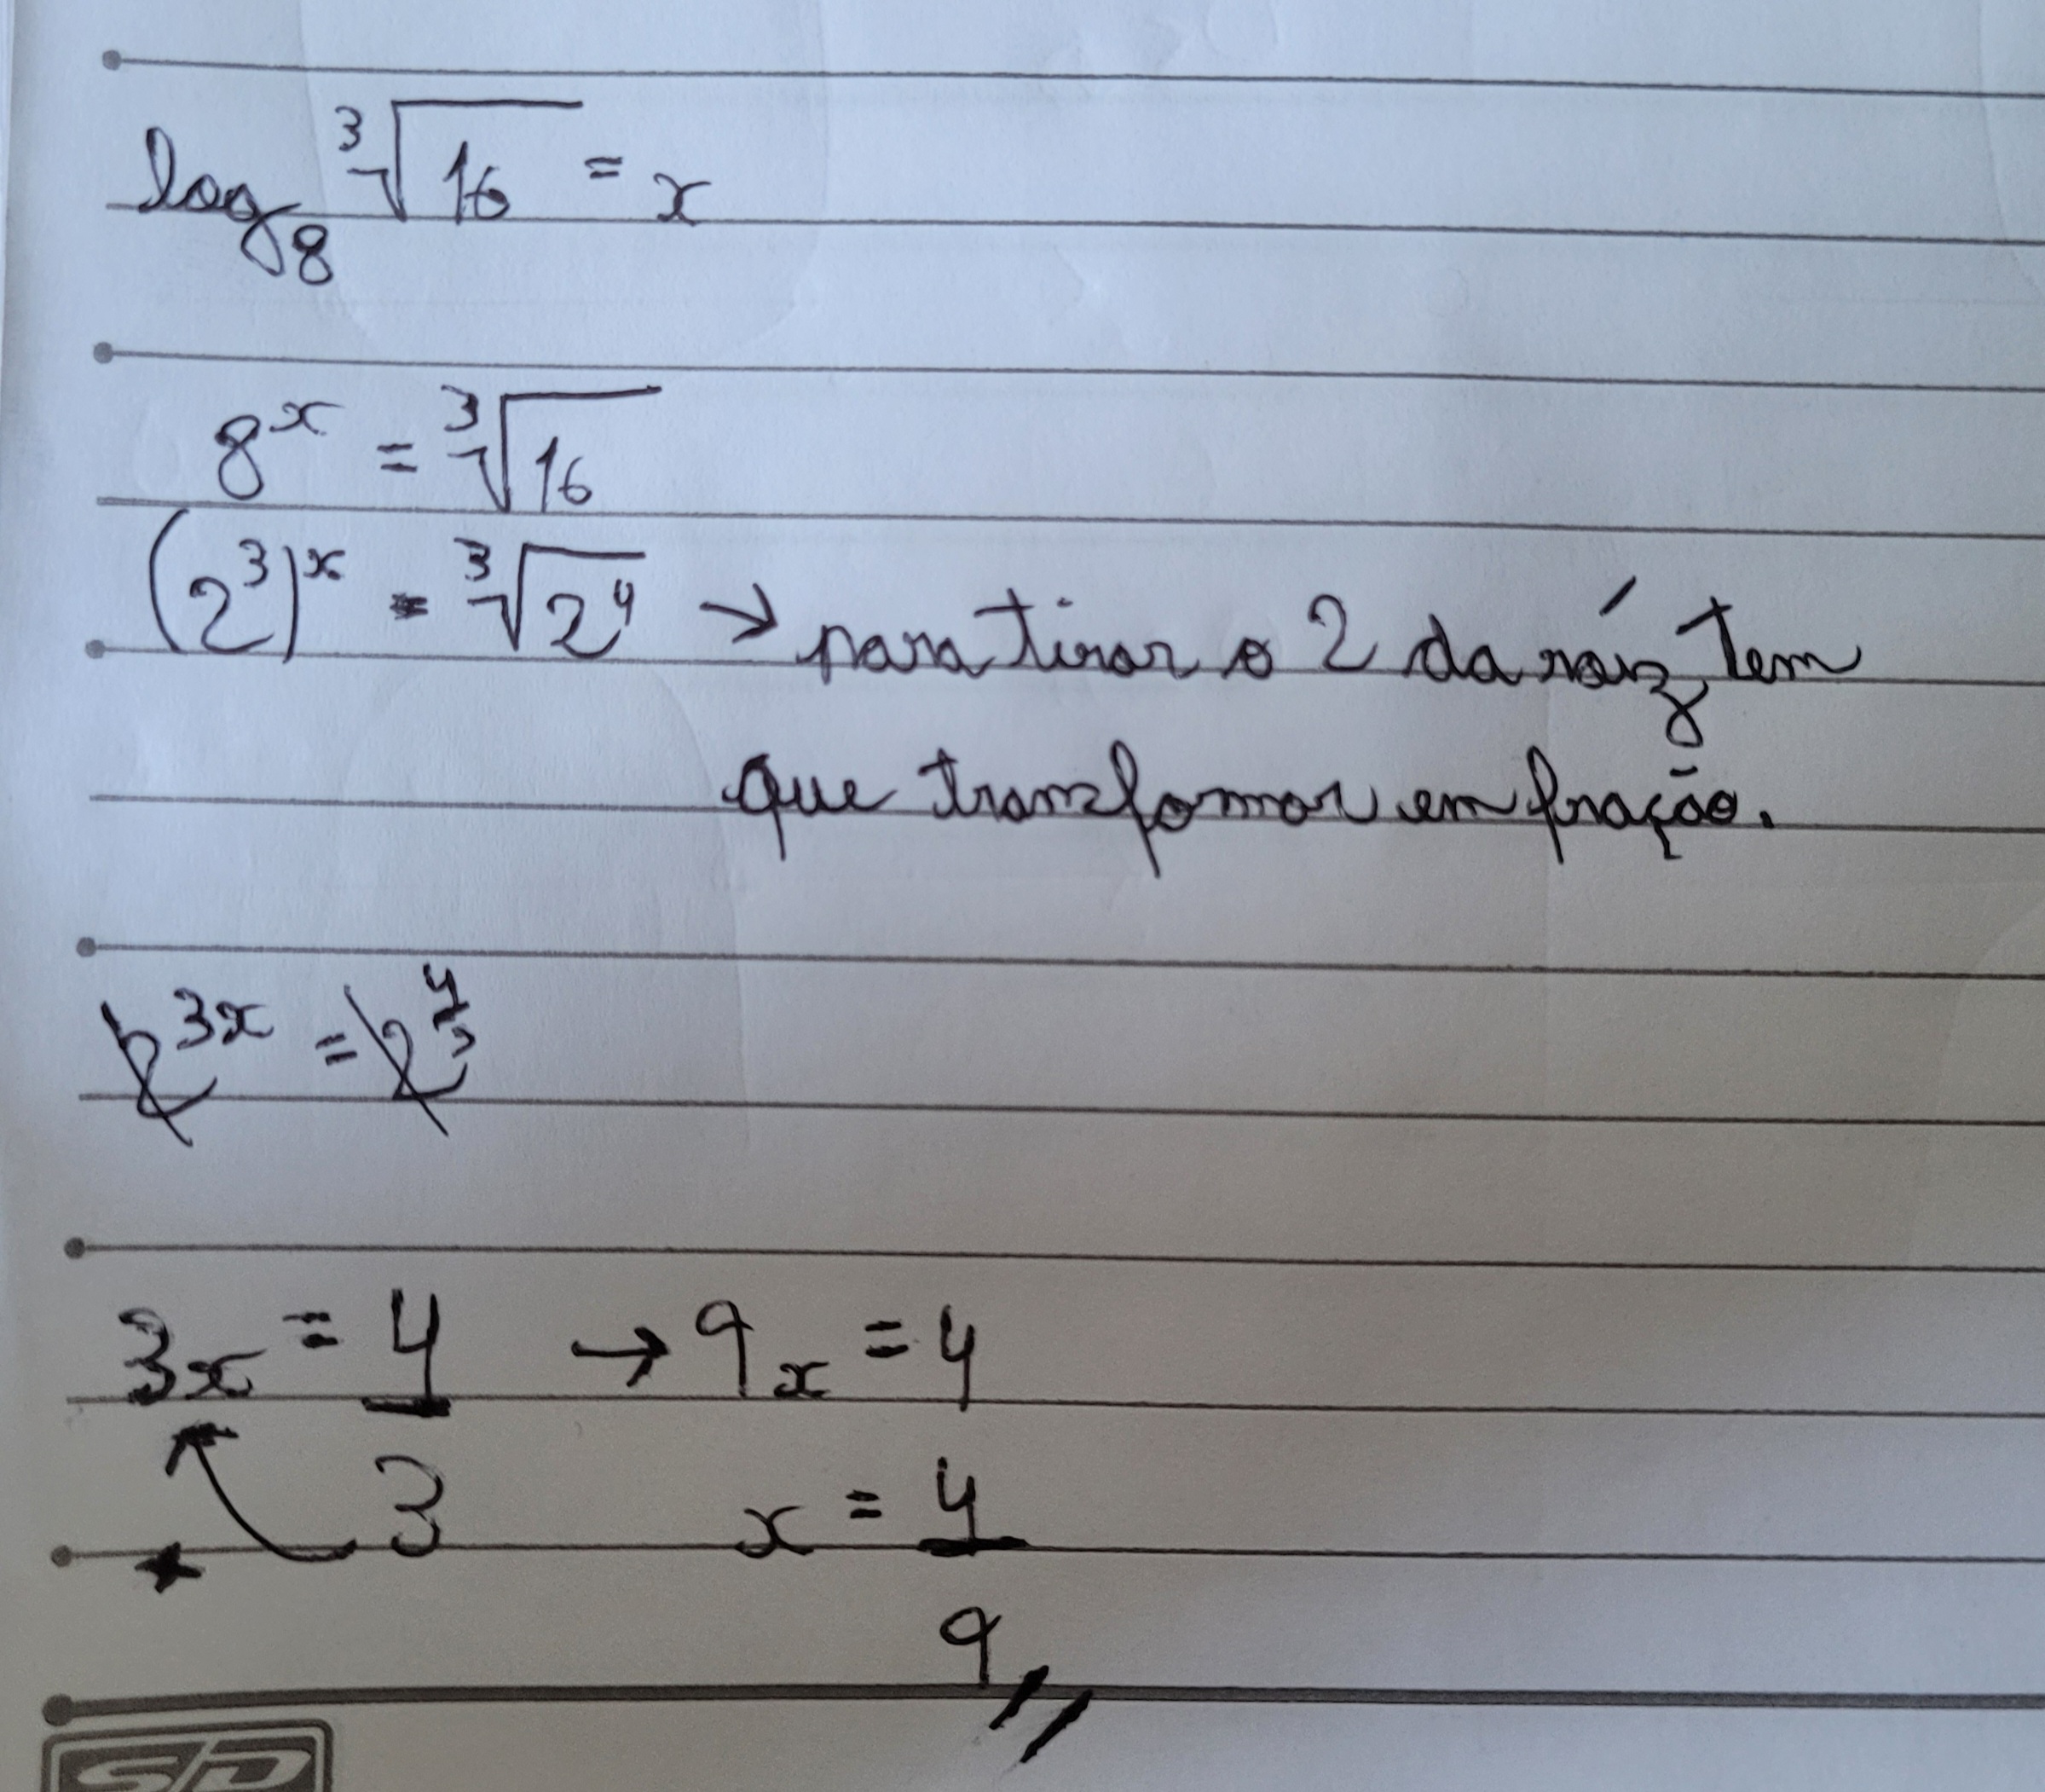 log₈ ∛16 = x
8ˣ = ∛16
(2³)ˣ = ∛2⁴ → para tirar o 2 da raíz, tem
que transformar em fração.
2³ˣ = 2^4/3
3x = 4/3 → 9x = 4
x = 4/9 //
SD